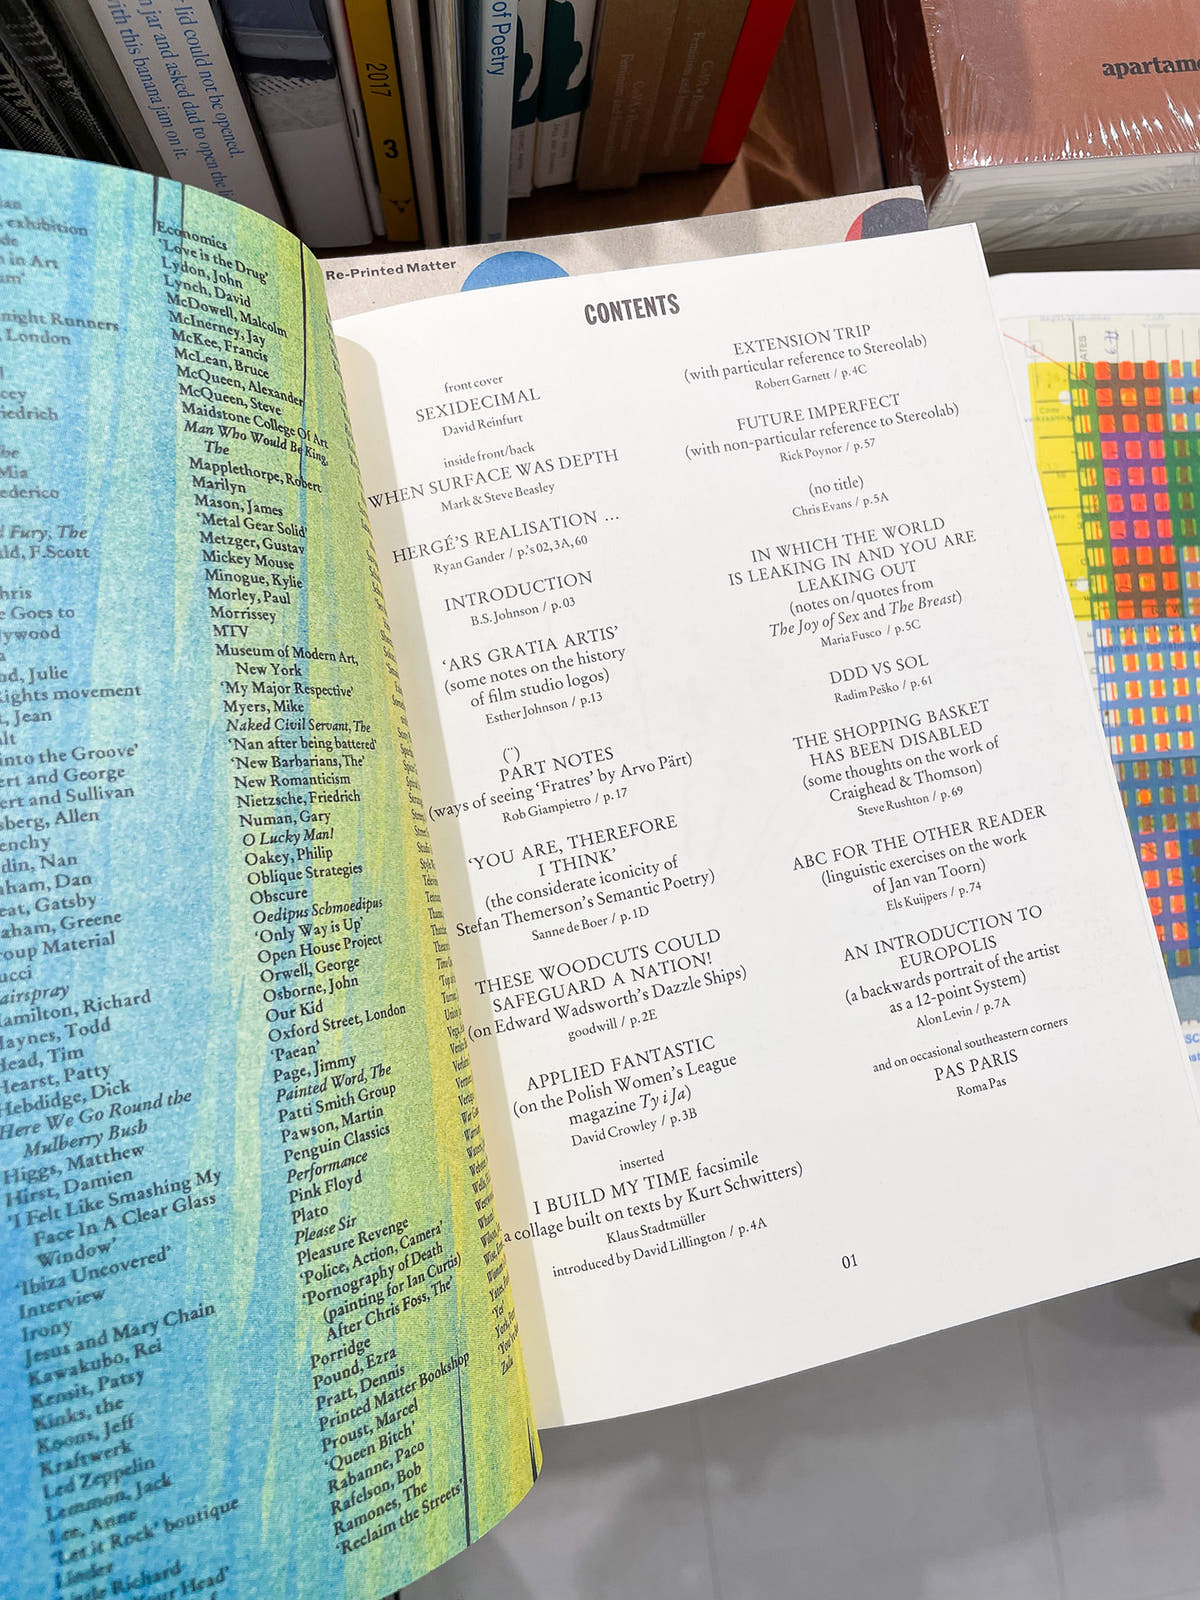 r lid could not be opened.
n jar and asked dad to open the
with this banana jam on it.
2017
3
of Poetry
apartame
Re-Printed Matter
exhibition
in Art
night Runners
London
Fury, The
ald, F.Scott
Goes to
lywood
Julie
Rights movement
Jean
into the Groove'
ert and George
ert and Sullivan
sberg, Allen
din, Nan
aham, Dan
eat, Gatsby
aham, Greene
roup Material
ucci
airspray
Hamilton, Richard
Haynes, Todd
Head, Tim
Hearst, Patty
Hebdidge, Dick
Here We Go Round the
Mulberry Bush
Higgs, Matthew
Hirst, Damien
'I Felt Like Smashing My
Face In A Clear Glass
Window'
'Ibiza Uncovered'
Interview
Irony
Jesus and Mary Chain
Kawakubo, Rei
Kensit, Patsy
Kinks, the
Koons, Jeff
Kraftwerk
Led Zeppelin
Lemmon, Jack
Lee, Anne
'Let it Rock' boutique
Linder
Little Richard
Your Head'
Economics
'Love is the Drug'
Lydon, John
Lynch, David
McDowell, Malcolm
McInerney, Jay
McKee, Francis
McLean, Bruce
McQueen, Alexander
McQueen, Steve
Maidstone College Of Art
Man Who Would Be King,
The
Mapplethorpe, Robert
Marilyn
Mason, James
'Metal Gear Solid'
Metzger, Gustav
Mickey Mouse
Minogue, Kylie
Morley, Paul
Morrissey
MTV
Museum of Modern Art,
New York
'My Major Respective'
Myers, Mike
Naked Civil Servant, The
'Nan after being battered'
'New Barbarians, The'
New Romanticism
Nietzsche, Friedrich
Numan, Gary
O Lucky Man!
Oakey, Philip
Oblique Strategies
Obscure
Oedipus Schmoedipus
'Only Way is Up'
Open House Project
Orwell, George
Osborne, John
Our Kid
Oxford Street, London
'Paean'
Page, Jimmy
Painted Word, The
Patti Smith Group
Pawson, Martin
Penguin Classics
Performance
Pink Floyd
Plato
Please Sir
Pleasure Revenge
'Police, Action, Camera'
'Pornography of Death
(painting for Ian Curtis)
After Chris Foss, The'
Porridge
Pound, Ezra
Pratt, Dennis
Printed Matter Bookshop
Proust, Marcel
'Queen Bitch'
Rabanne, Paco
Rafelson, Bob
Ramones, The
'Reclaim the Streets'
CONTENTS
front cover
SEXIDECIMAL
David Reinfurt
inside front/back
WHEN SURFACE WAS DEPTH
Mark & Steve Beasley
HERGÉ'S REALISATION ...
Ryan Gander / p.'s 02,3A,60
INTRODUCTION
B.S. Johnson / p.03
'ARS GRATIA ARTIS'
(some notes on the history
of film studio logos)
Esther Johnson / p.13
(¨)
PART NOTES
(ways of seeing 'Fratres' by Arvo Pärt)
Rob Giampietro / p.17
'YOU ARE, THEREFORE
I THINK'
(the considerate iconicity of
Stefan Themerson's Semantic Poetry)
Sanne de Boer / p.1D
THESE WOODCUTS COULD
SAFEGUARD A NATION!
(on Edward Wadsworth's Dazzle Ships)
goodwill / p.2E
APPLIED FANTASTIC
(on the Polish Women's League
magazine Ty i Ja)
David Crowley / p.3B
inserted
I BUILD MY TIME facsimile
a collage built on texts by Kurt Schwitters)
Klaus Stadtmüller
introduced by David Lillington / p.4A
EXTENSION TRIP
(with particular reference to Stereolab)
Robert Garnett / p.4C
FUTURE IMPERFECT
(with non-particular reference to Stereolab)
Rick Poynor / p.57
(no title)
Chris Evans / p.5A
IN WHICH THE WORLD
IS LEAKING IN AND YOU ARE
LEAKING OUT
(notes on/quotes from
The Joy of Sex and The Breast)
Maria Fusco / p.5C
DDD VS SOL
Radim Peško / p.61
THE SHOPPING BASKET
HAS BEEN DISABLED
(some thoughts on the work of
Craighead & Thomson)
Steve Rushton / p.69
ABC FOR THE OTHER READER
(linguistic exercises on the work
of Jan van Toorn)
Els Kuijpers / p.74
AN INTRODUCTION TO
EUROPOLIS
(a backwards portrait of the artist
as a 12-point System)
Alon Levin / p.7A
and on occasional southeastern corners
PAS PARIS
Roma Pas
01